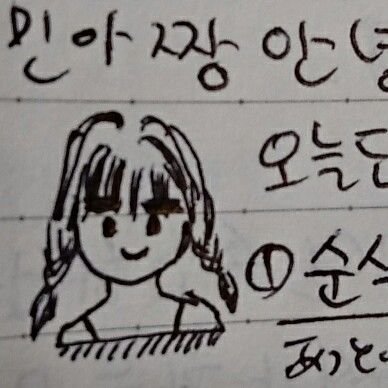 민아짱 안녕
오늘도
① 순식
あっとい